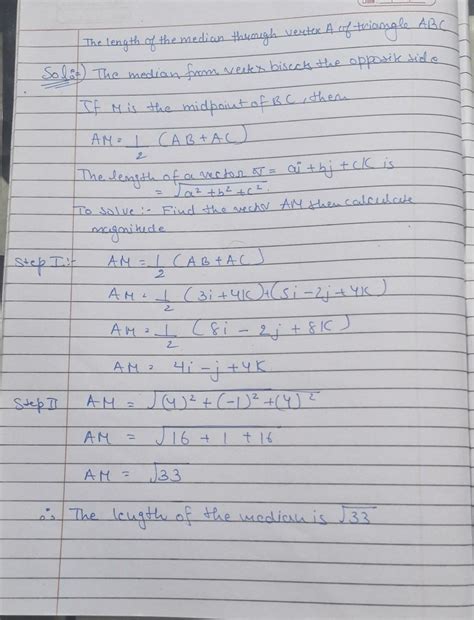 The length of the median through vertex A of triangle ABC
Sol:-) The median from vertex bisects the opposite side
If M is the midpoint of BC, then
AM = 1/2 (AB + AC)
The length of a vector v = ai + bj + ck is
= √a² + b² + c².
To solve :- Find the vector AM then calculate
magnitude
Step I:- AM = 1/2 (AB + AC)
AM = 1/2 (3i + 4K) + (5i - 2j + 4K)
AM = 1/2 (8i - 2j + 8K)
AM = 4i - j + 4K
Step II AM = √(4)² + (-1)² + (4)²
AM = √16 + 1 + 16
AM = √33
∴ The length of the median is √33